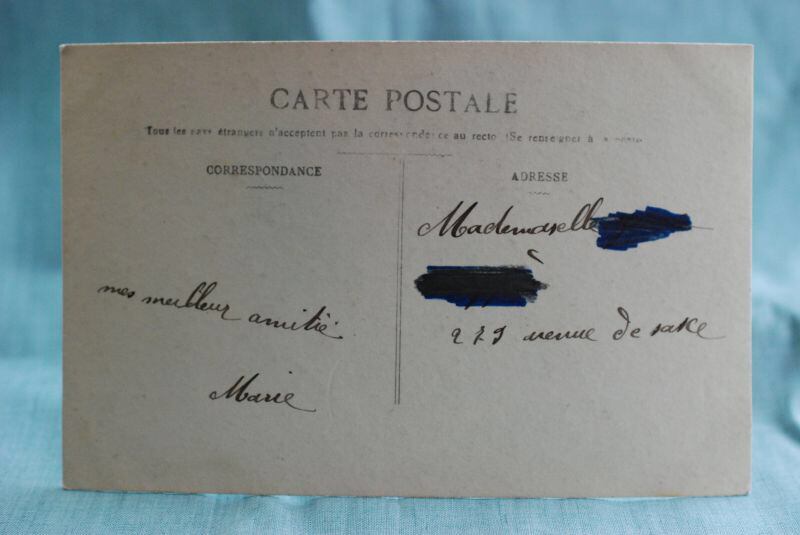 CARTE POSTALE
Tous les pays étrangers n'acceptent pas la correspondance au recto (Se renseigner à la poste)
CORRESPONDANCE
ADRESSE
Mademaselle
à
mes meilleur amitié
279 avenue de saxe
Marie